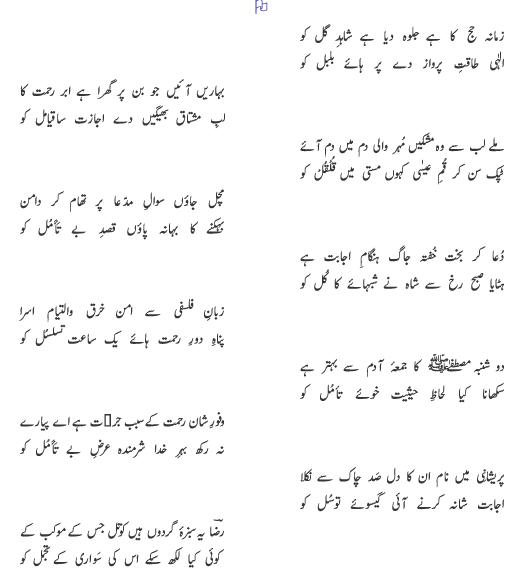 زمانہ حج کا ہے جلوہ دیا ہے شاہدِ گل کو
الٰہی طاقتِ پرواز دے پر ہائے بلبل کو
بہاریں آئیں جو بن پر گھرا ہے ابر رحمت کا
لبِ مشتاق بھیگیں دے اجازت ساقیا مُل کو
ملے لب سے وہ مشکیں مُہر والی دم میں دم آئے
ٹپک سن کر قُمِ عیسٰی کہوں مستی میں قُلْقُل کو
مچل جاؤں سوالِ مدّعا پر تھام کر دامن
بہکنے کا بہانہ پاؤں قصدِ بے تأمُل کو
دُعا کر بخت خُفتہ جاگ ہنگامِ اجابت ہے
ہٹایا صبح رخ سے شاہ نے شبہائے کا کُل کو
زبانِ فلسفی سے امن خرق والتیام اسرا
پناہِ دورِ رحمت ہائے یک ساعت تسلسُل کو
دو شنبہ مصطفٰے ﷺ کا جمعۂ آدم سے بہتر ہے
سکھانا کیا لحاظِ حیثیت خوئے تأمُل کو
وفورِ شان رحمت کے سبب جر ت ہے اے پیارے
نہ رکھ بہرِ خدا شرمندہ عرضِ بے تأمُل کو
پریشانی میں نام ان کا دل صَد چاک سے نکلا
اجابت شانہ کرنے آئی گیسوئے توسُل کو
رضاؔ یہ سبزۂ گردوں ہیں کوتل جس کے موکب کے
کوئی کیا لکھ سکے اس کی سَواری کے تجمُل کو